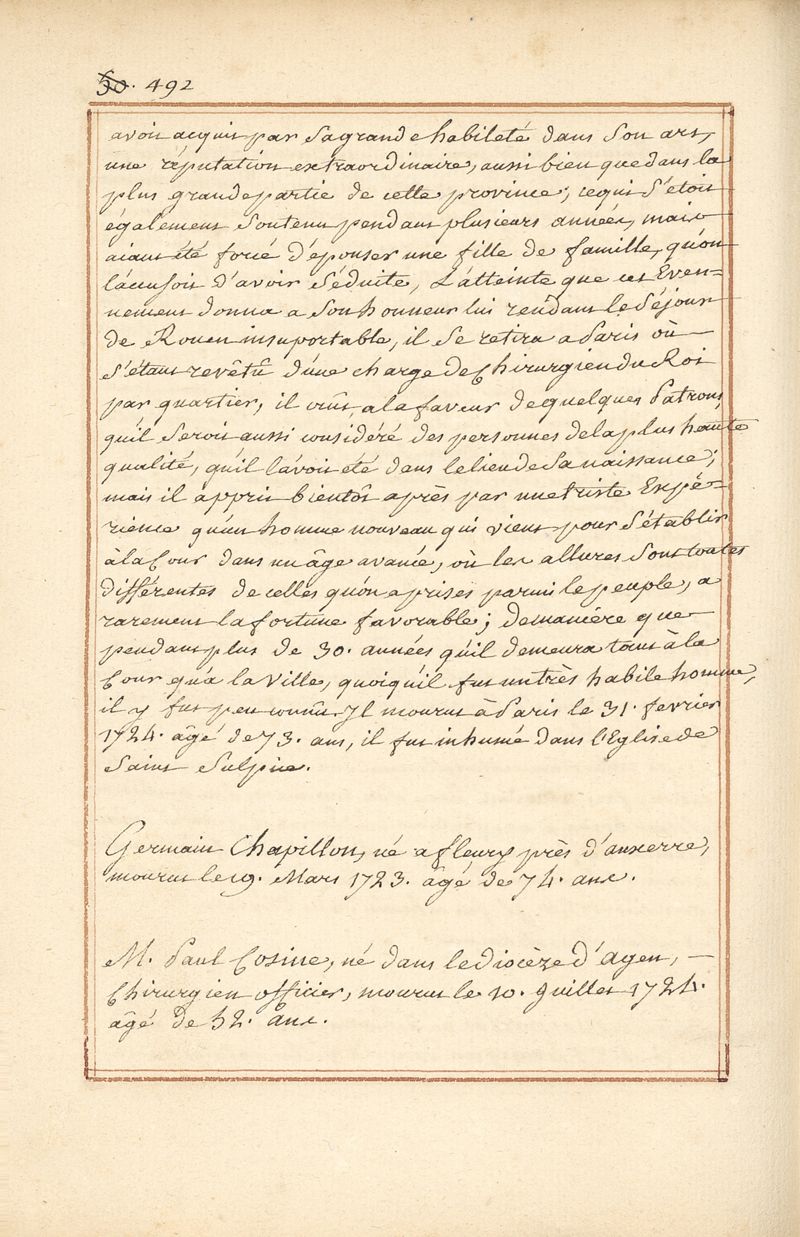 50. 492
avoit acquit par sa grande habileté dans son art,
une réputation extraordinaire, aussi bien que dans la
plus grande partie de cette province; ce qui s'étoit
également soutenu pendant plusieurs années, mais
aiant été forcé d'épouser une fille de famille, qu'on
l'acusoit d'avoir séduite, L'atteinte que cet Even=
nement donna a son honneur lui rendant le séjour
de Rouen insuportable, il se retira a Paris où —
s'étant revêtû d'une charge de Chirurgien du Roi
par quartier, il crût, a la faveur de quelques Patrons,
qu'il seroit aussi considéré des personnes de la plus haute
qualité, qu'il l'avoit été dans le lieu de sa naissance;
mais il apprit bientôt après par une triste Expé=
rience qu'un homme nouveau qui vient pour s'établir
à la Cour dans un âge avancé, où les allures sont toutes
différentes de celles qu'on a prises parmi le peuple, a
rarement la fortune favorable; de manière que
pendant plus de 30. années qu'il demeura tant à la
Cour qu'a la Ville, quoiqu'il fut un très habile homme,
il y fut peu connû. Il mourut à Paris le 31. fevrier
1724. âgé de 73. ans, il fut inhumé dans l'Eglise de
Saint Sulpice.
Germain Chapillon, né a fleury près d'auxerre,
mourut le 19. Mars 1723. âgé de 74. ans.
M. Paul Cosine, né dans le diocèze d'Agen, —
Chirurgien officier, mourut le 10. Juillet 1724.
âgé de 52. Ans.